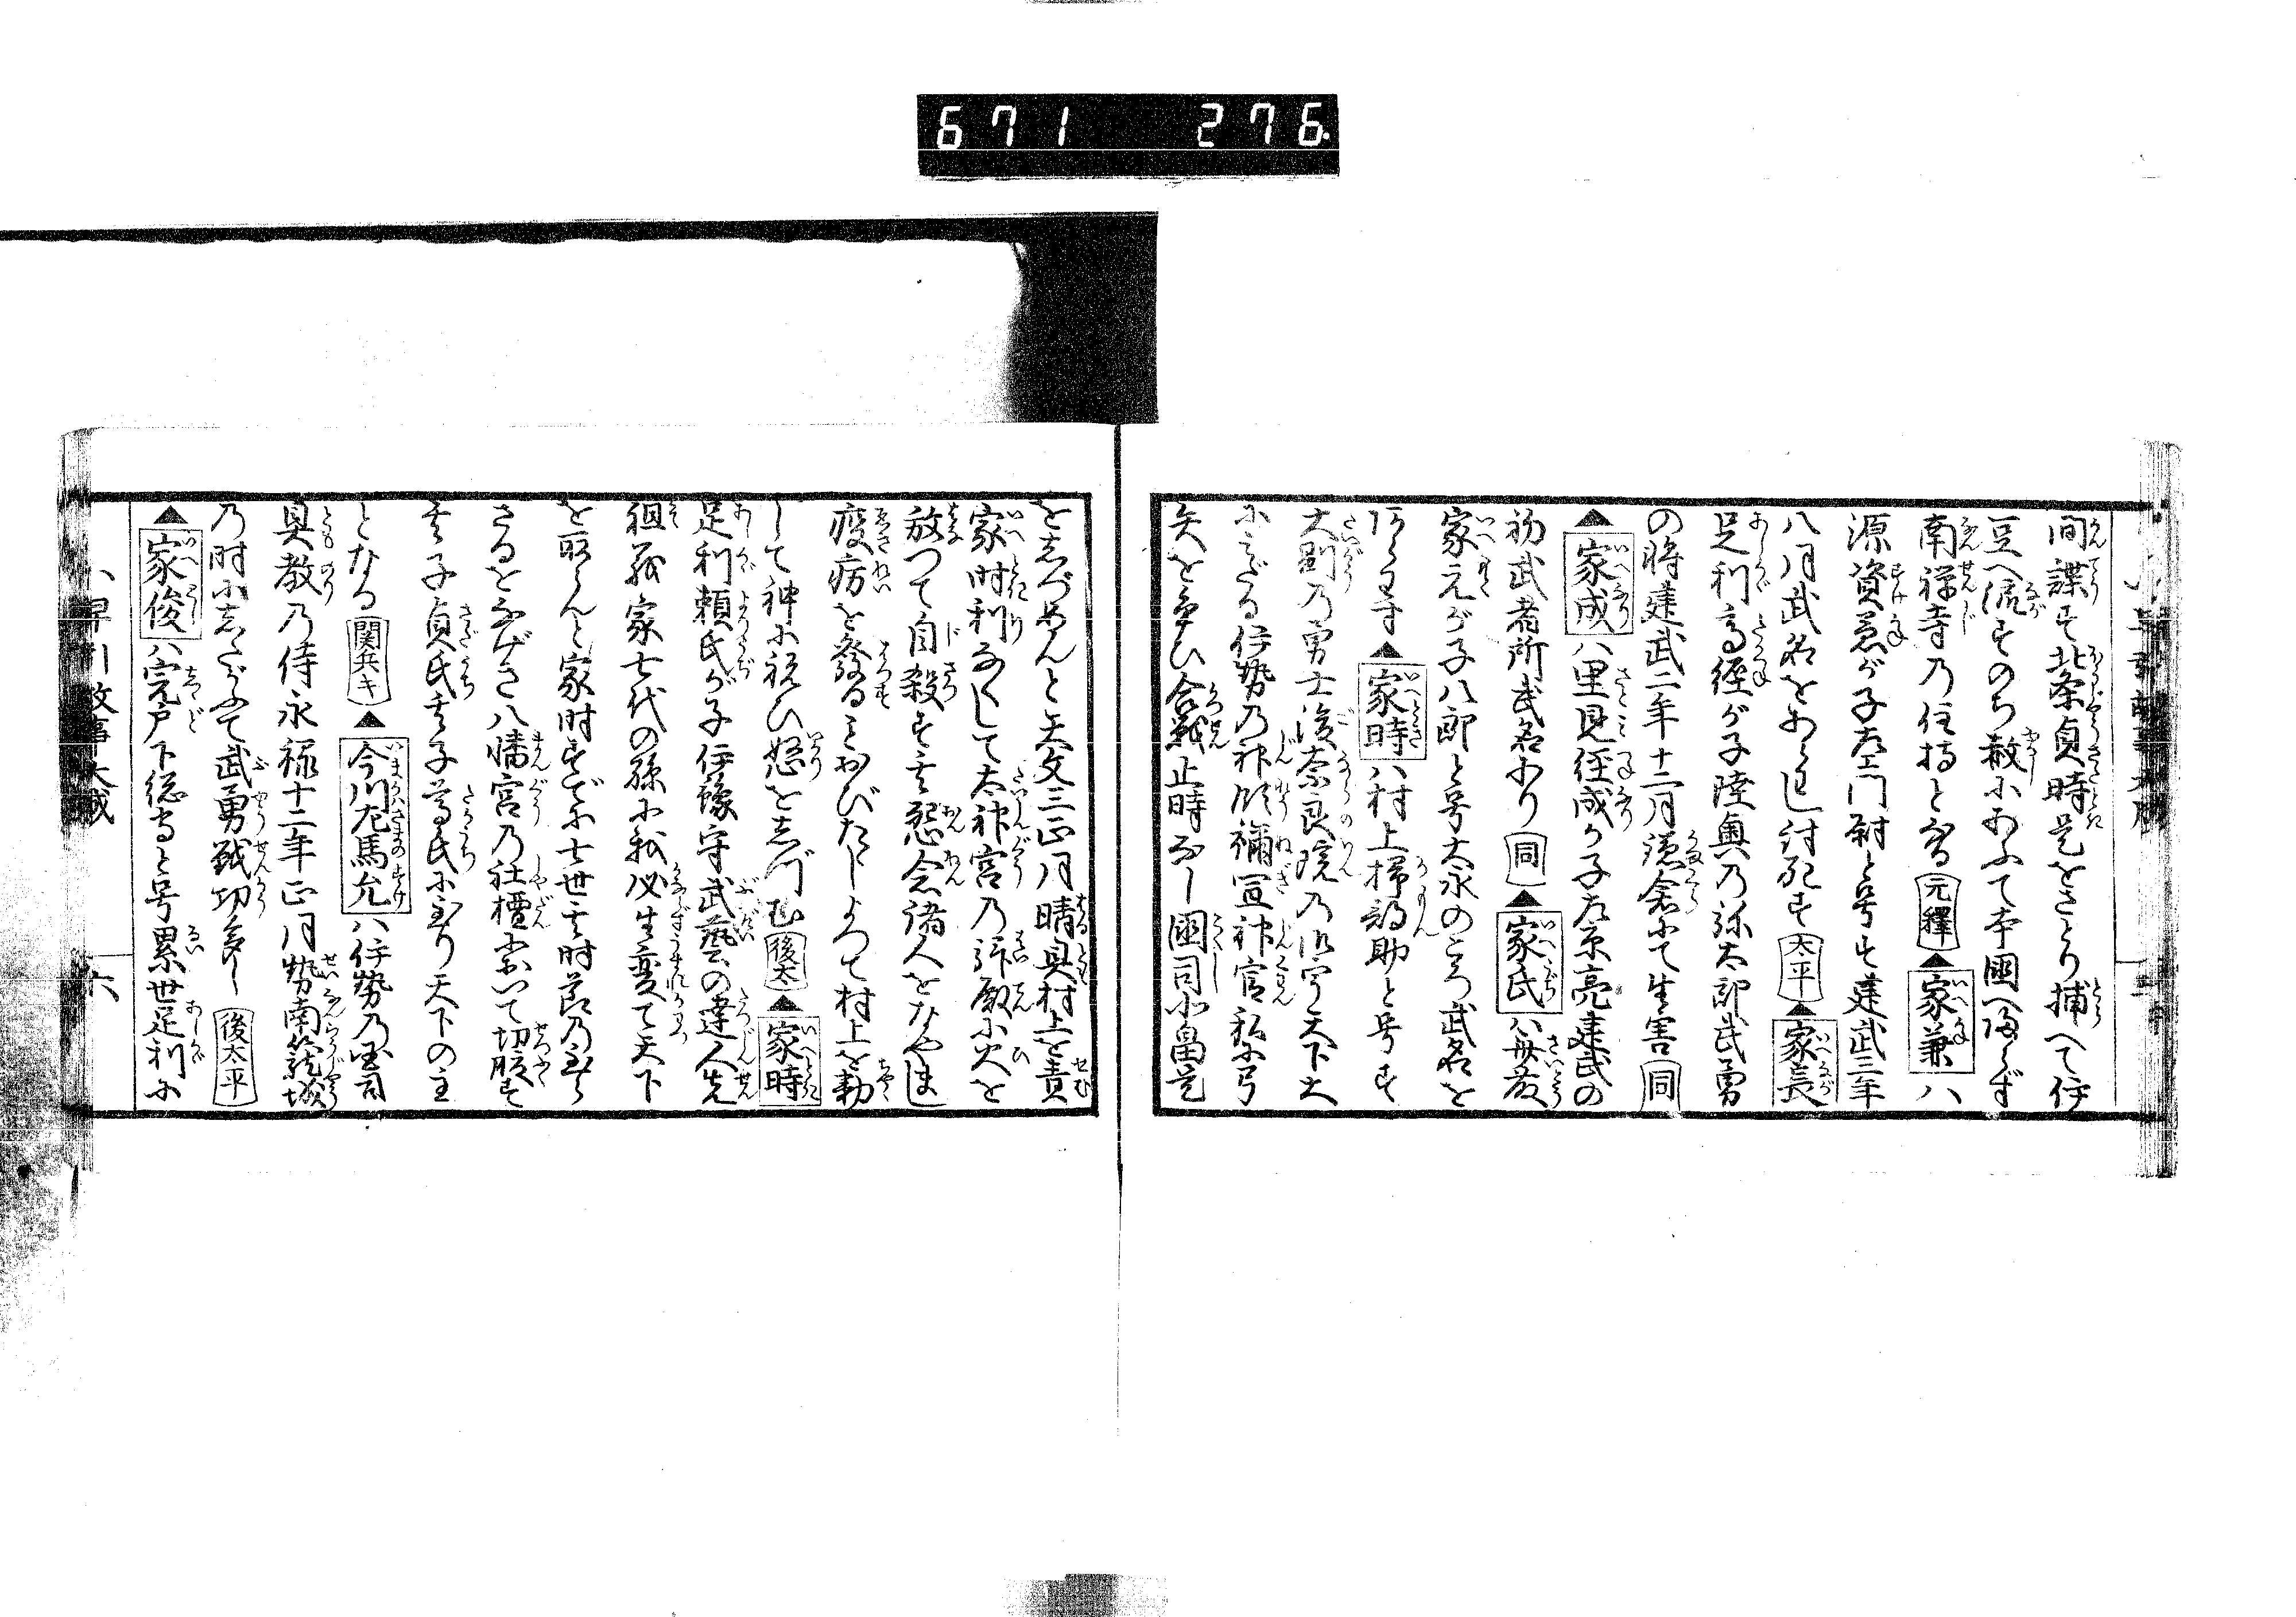 671 276
間諜す北条貞時是をさとり捕へて伊
豆へ流すそのち赦にあふて本國へ帰らず
南禅寺乃住持となる 元釋 ▲家兼ハ
源資兼が子左エ門尉と号す建武三年
八月武名をあらハし討死す 太平 ▲家長
足利高經が子陸奥乃弥太郎武勇
の将建武二年十二月鎌倉にて生害 同
▲家成ハ里見経成が子左京亮建武の
初武者所武名あり 同 ▲家氏ハ斎藤
家元が子八郎と号大永のころ武名を
▲家時ハ村上掃部助と号す
大剛乃勇士後奈良院乃御宇天下大
にみだる伊勢乃神領禰宜神官私に弓
矢を争ひ合戦止時なし國司北畠是
をしづめんと天文三正月晴具村上を責
家時利なくして太神宮乃拝殿に火を
放つて自殺す其怨念諸人をなやまし
疫病を發るとおびたゝしよつて村上を勅
して神に祝ひ怒をしづむ 後太 ▲家時
足利頼氏が子伊豫守武藝の達人先
祖義家七代の孫に我必生変て天下
を取らんと家時すでに七世其時節乃至ら
さるをなげき八幡宮乃社檀において切腹す
其子貞氏其子尊氏に至り天下の主
となる 関兵キ ▲今川左馬允ハ伊勢乃国司
具教乃侍永禄十二年正月勢南籠城
乃時にしたがふて武勇戦功多し 後太平
▲家俊ハ宍戸下総守と号累世足利に
早引故事大成
六